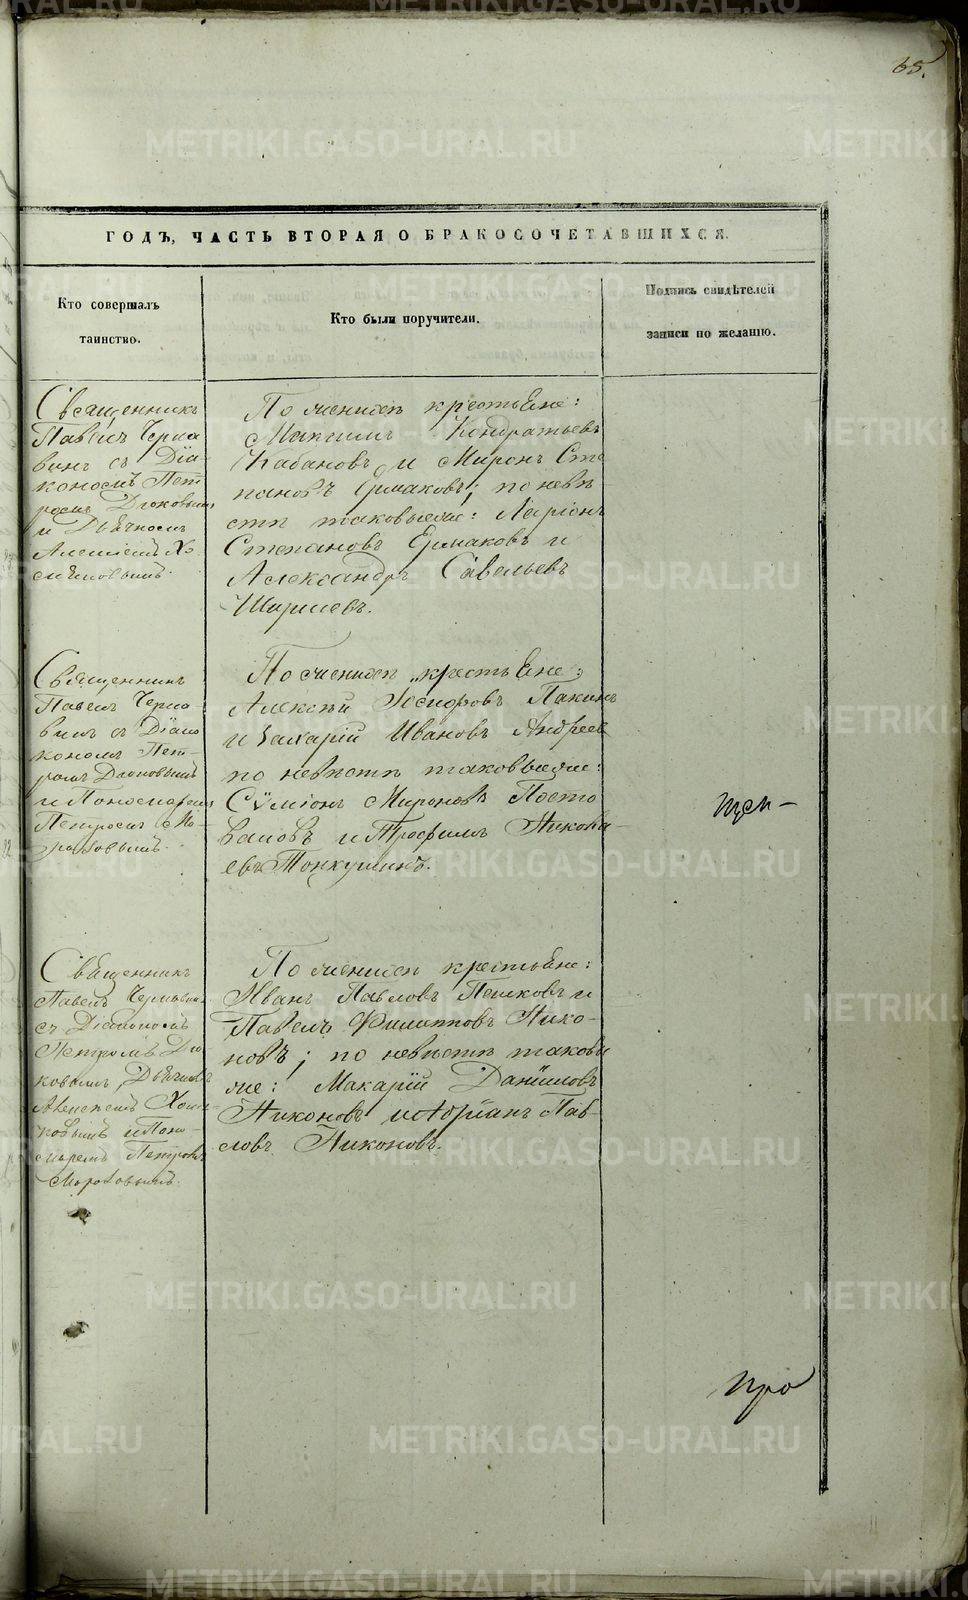 65.
ГОДЪ, ЧАСТЬ ВТОРАЯ О БРАКОСОЧЕТАВШИХСЯ.
Кто совершалъ
таинство.
Кто были поручители.
Подпись свидѣтелей
записи по желанію.
Священникъ
Павелъ Черна
винъ съ Діа-
кономъ Пет
ромъ
и Дьячкомъ
Алексіемъ Хо

По женихѣ крестьяне:
Максимъ Кондратьевъ
Кабановъ и Миронъ Сте
пановъ Ермаковъ; по невѣ
стѣ таковыеже: Ларіонъ
Степановъ Ермаковъ и
Александръ Савельевъ
Ширшевъ.
Священникъ
Павелъ Черна
винъ съ Діа
кономъ Пет-
ромъ
и Пономаремъ
Петромъ Мо-

По женихѣ крестьяне:
Алексѣй Пакинъ
и Захарій Ивановъ Андреев
по невѣстѣ таковыеже:
Сѵмеонъ Мироновъ Посто
валовъ и Трофимъ Никола
евъ Тонкушинъ.
Священникъ
Павелъ Чернавин
съ Діакономъ
Петромъ Дь
ковымъ, Дьячком
Алексіемъ Хом
ковымъ и Поно-
маремъ Петромъ

По женихѣ крестьяне:
Иванъ Павловъ Пешковъ и
Павелъ Филипповъ Нико-
новъ; по невѣстѣ таковы
же: Макарій Даніиловъ
Никоновъ и Пав-
ловъ Никоновъ.
про
METRIKI.GASO-URAL.RU